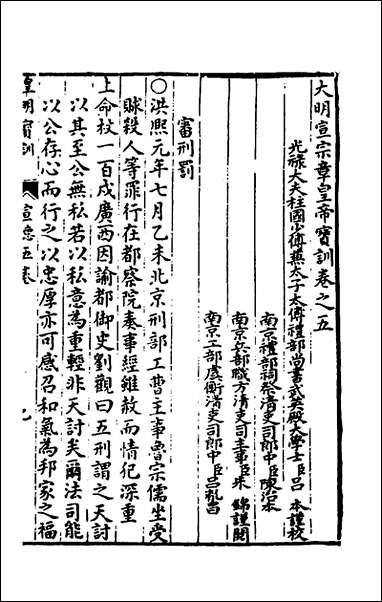 大明宣宗章皇帝寳訓卷之五
光祿大夫柱國少傅兼太子太傅禮部尚書武英殿大學士臣呂 本謹校
南京禮部祠祭清吏司郎中臣陳治本
南京兵部職方清吏司主事臣朱 錦謹閱
南京工部虞衡清吏司郎中臣呂胤昌
審刑罰
○洪熙元年七月乙未北京刑部工曹主事曾宗儒坐受
賕殺人等罪行在都察院奏事經雖赦而情犯深重
上命杖一百戍廣西因諭都御史劉觀曰五刑謂之天討
以其至公無私若以私意為重輕非天討矣爾法司能
以公存心而行之以忠厚亦可感召和氣為邦家之福
皇明寳訓 宣德五卷